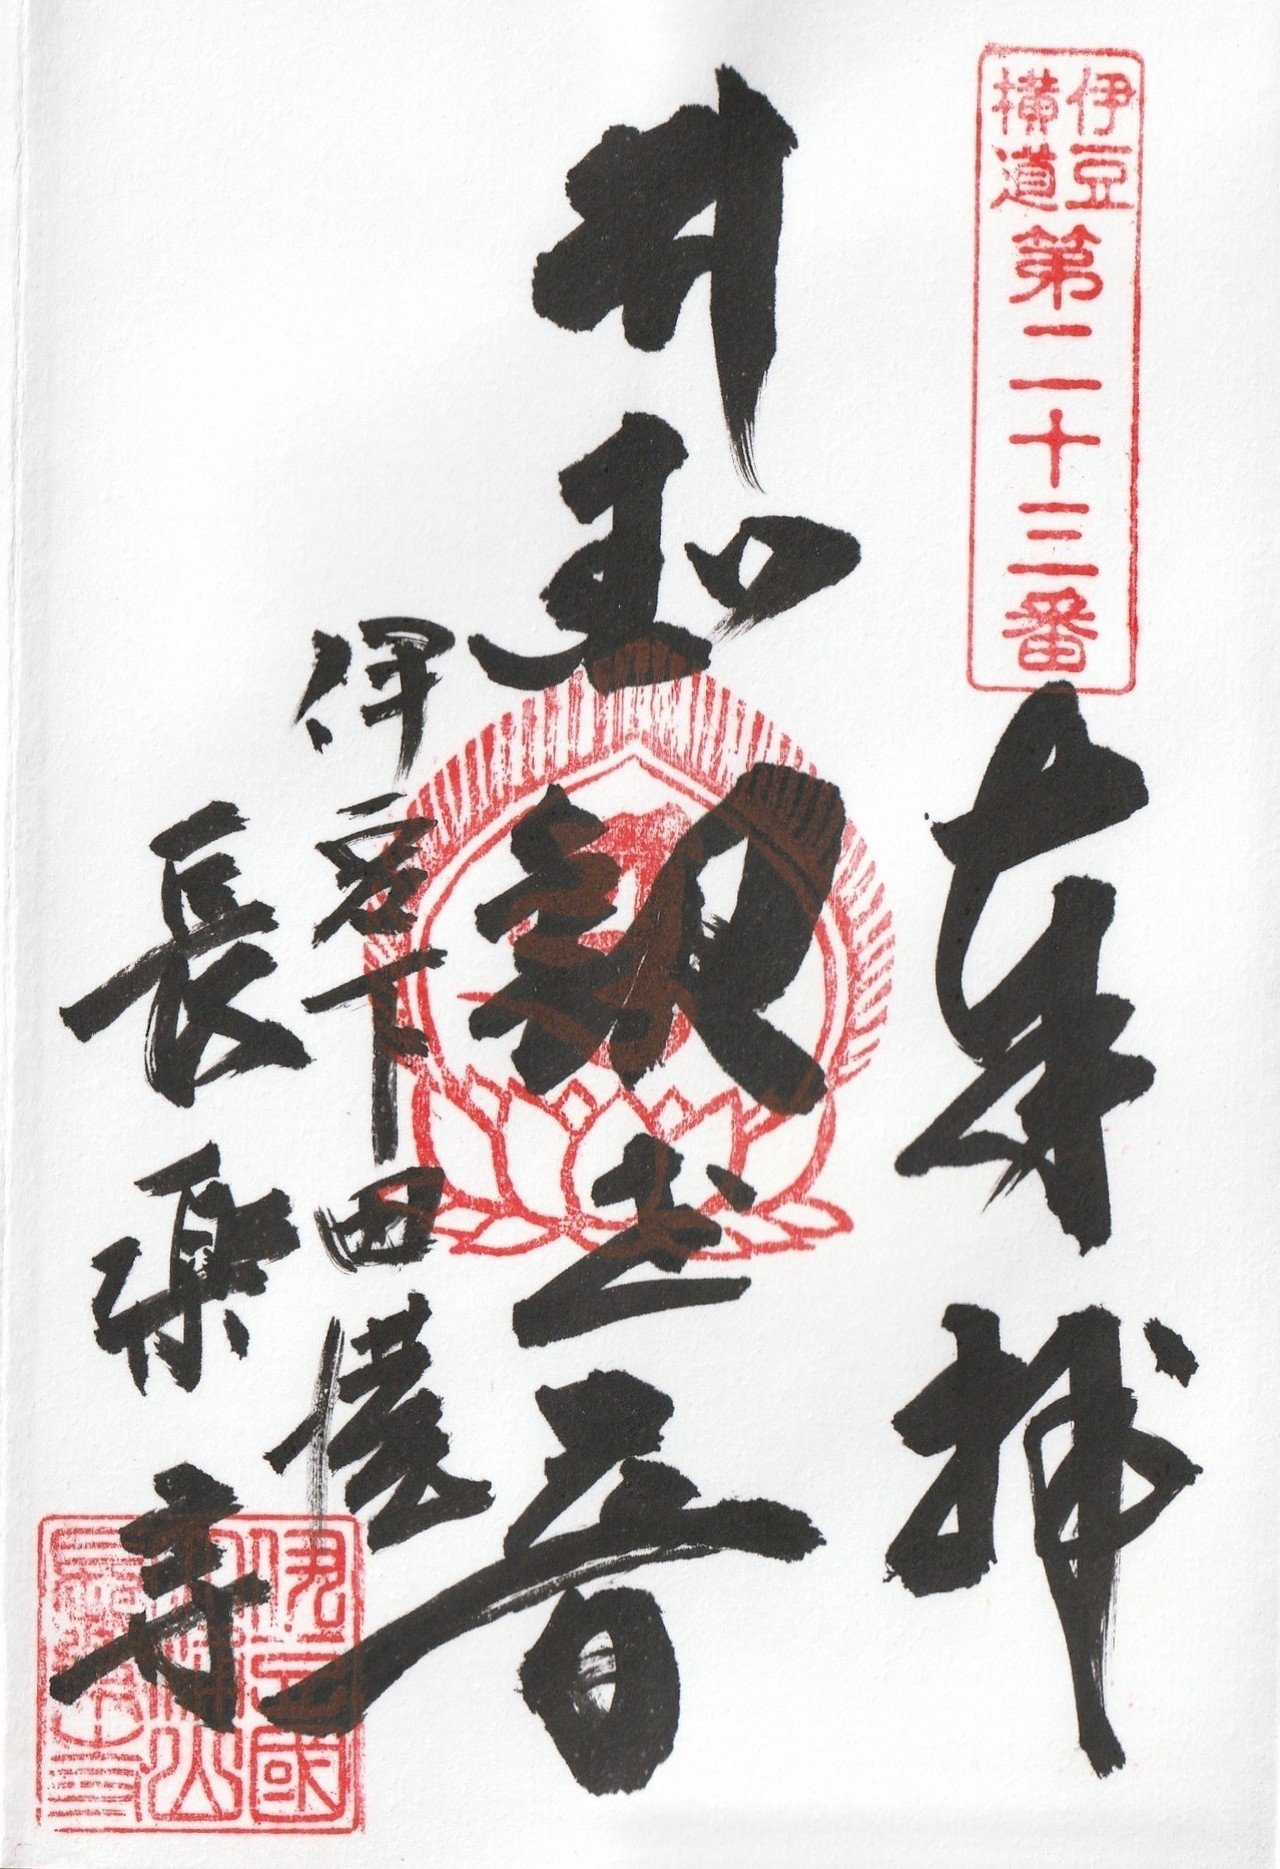 伊豆
横道
第二十三番
奉拝
観世音
伊豆下田湊
長楽寺
伊豆國
大浦山